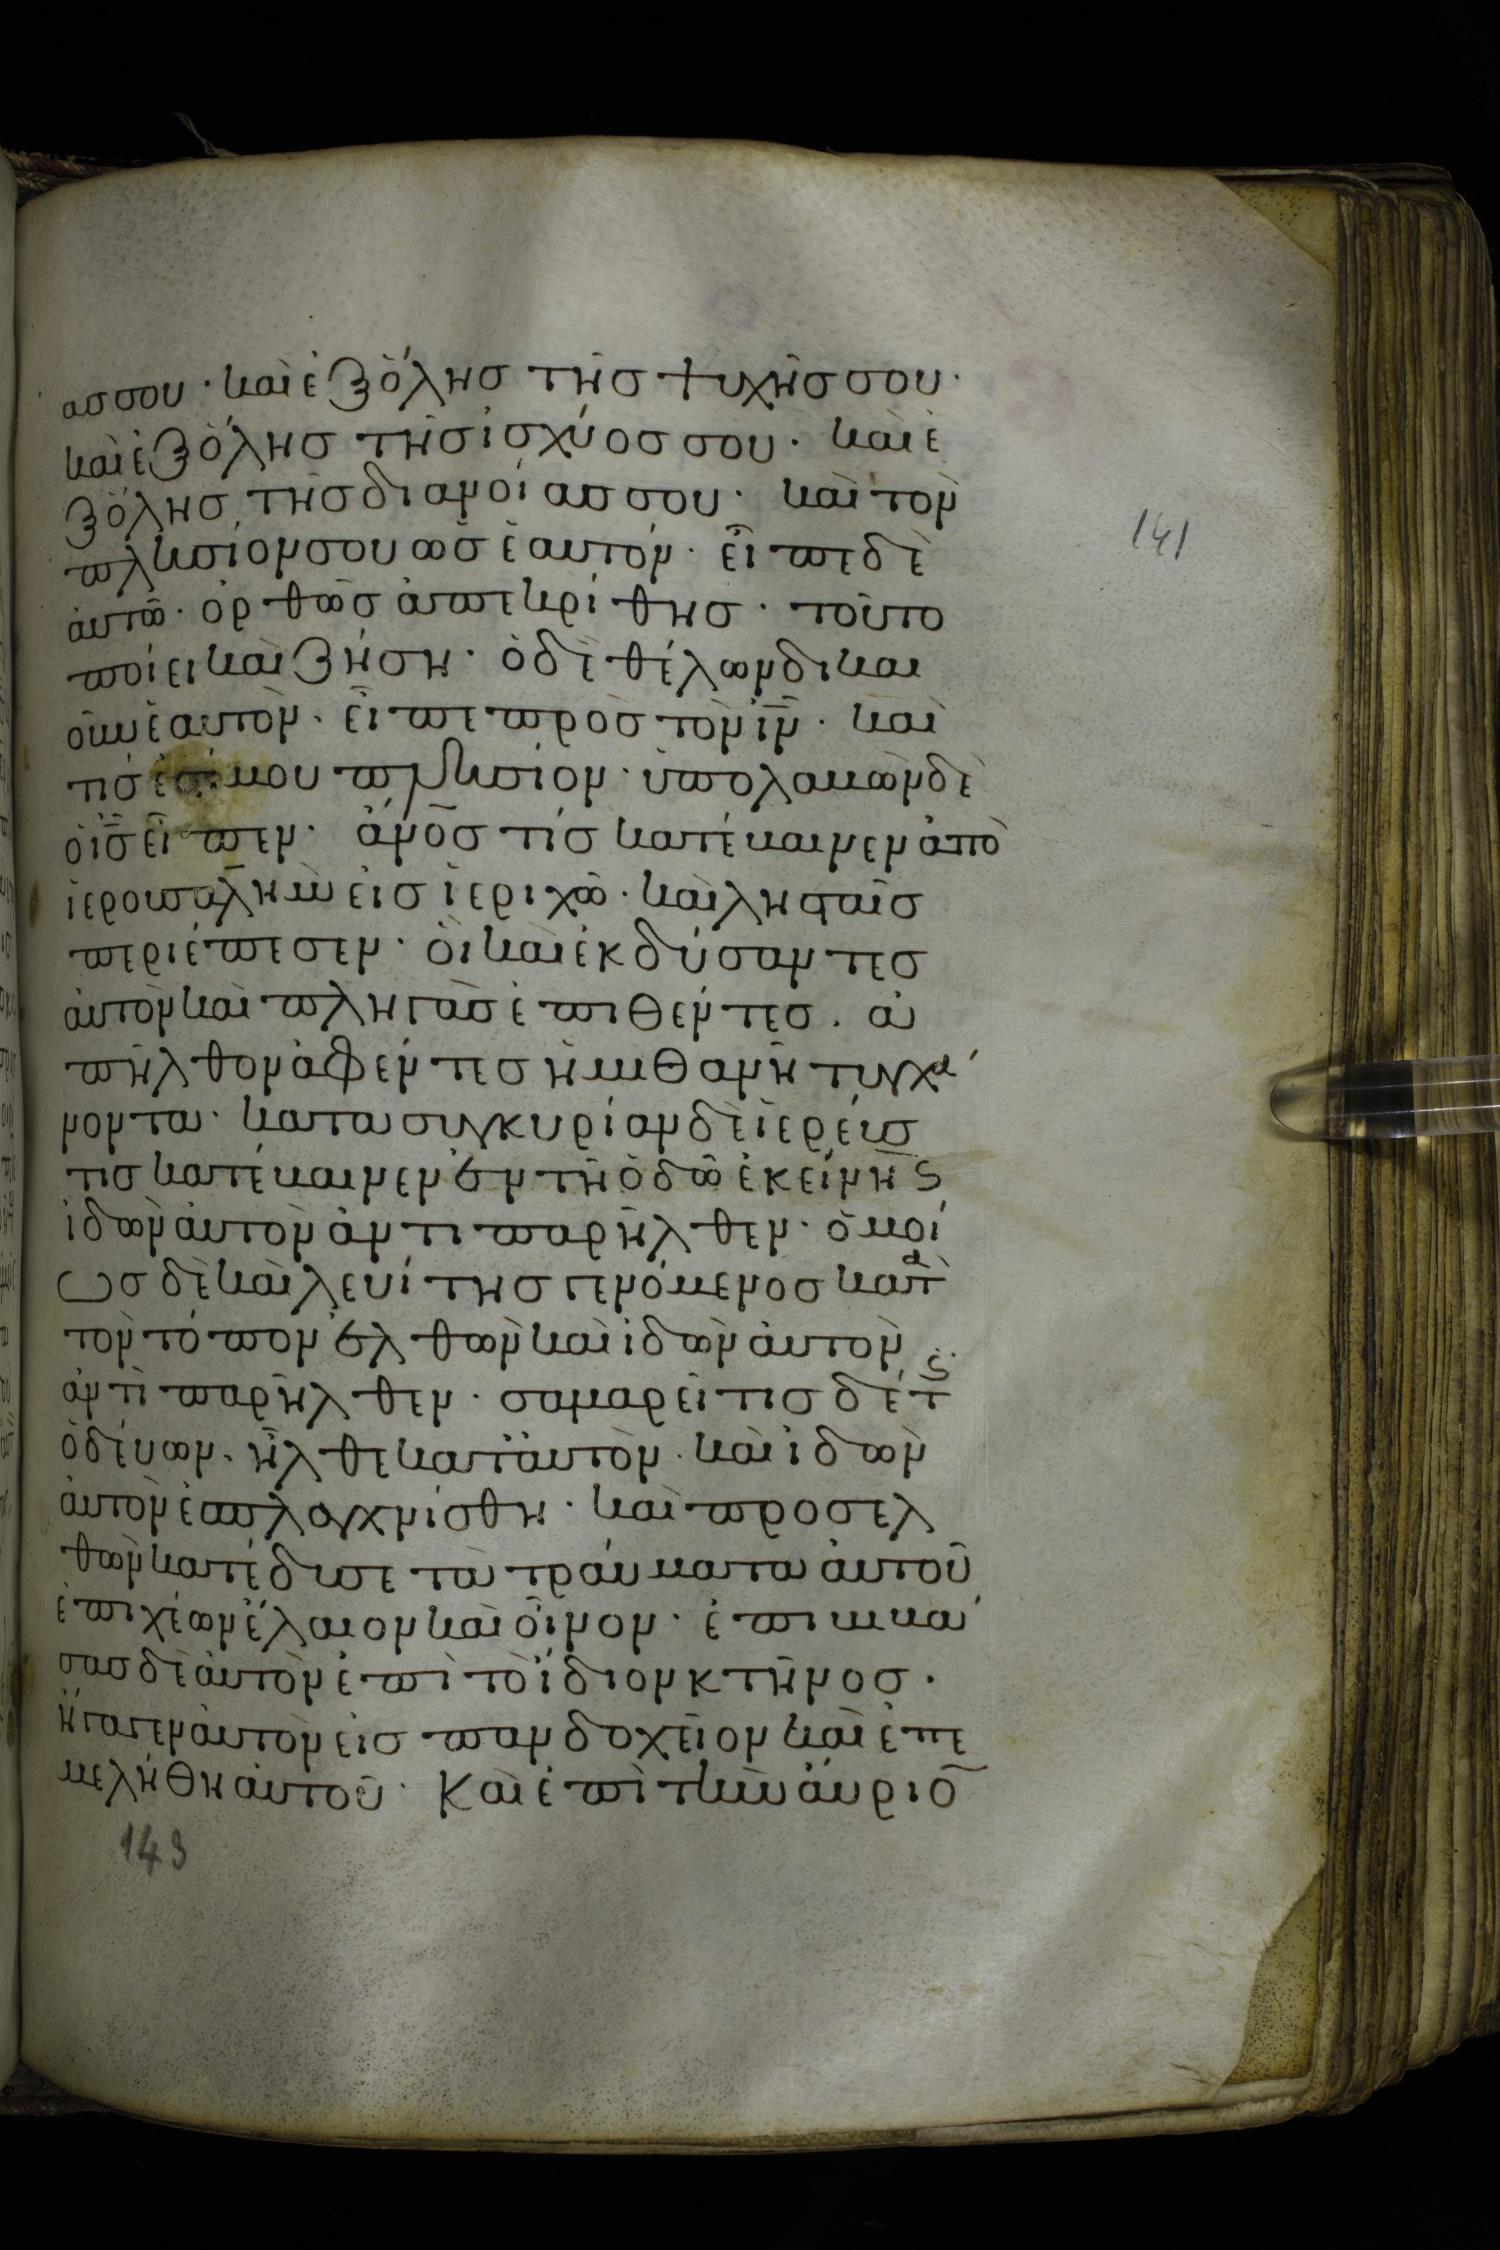 ασ σου · καὶ ἐξ ὅλησ τῆσ ψυχῆσ σου ·
καὶ ἐξ ὅλησ τῆσ ἰσχύοσ σου · καὶ ἐ
ξ ὅλησ τῆσ διανοίασ σου · καὶ τὸν
πλησίον σου ὡσ ἑαυτόν · εἶπε δὲ
ἀυτῶ · ὀρθῶσ ἀπεκρίθησ · τοῦτο
ποίει καὶ ζήση · ὁ δὲ θέλων δικαι
οῦν ἑαυτὸν · εἶπε πρὸσ τὸν ι̅ν̅ · καὶ
τίσ ἐστί μου πλησίον · ὑπολαβὼν δὲ
ὁ ι̅σ̅ εἶπεν · ἄν̅ο̅σ̅ τίσ κατέβαινεν ἀπὸ
ἱερουσαλὴμ εἰσ ἱεριχῶ · καὶ λησταῖσ
περιέπεσεν · ὃι καὶ ἐκδύσαντεσ
ἀυτὸν καὶ πληγὰσ ἐπιθέντεσ · ἀ
πῆλθον ἀφέντεσ ἡμιθανῆ τυγχά
νοντα · κατα συγκυρίαν δὲ ἱερεύσ
τισ κατέβαινεν ἐν τῆ ὁδῶ ἐκείνη ϛ
ἰδὼν ἀυτὸν ἀντιπαρῆλθεν · ὁμοί
ωσ δὲ καὶ λευίτησ γενόμενοσ κατὰ
τὸν τόπον ἐλθὼν καὶ ἰδὼν ἀυτὸν
ἀντὶπαρῆλθεν · σαμαρείτισ δέ τισ
ὁδέυων · ἦλθε κατ ἀυτὸν · καὶ ἰδὼν
ἀυτὸν ἐσπλαγχνίσθη · καὶ προσελ
θὼν κατέδησε τὰ τράυματα ἀυτοῦ
ἐπιχέων ἔλαιον καὶ ὅινον · ἐπιβιβά
σασ δὲ ἀυτὸν ἐπὶ τὸ ἴδιον κτῆνοσ ·
ἤγαγεν ἀυτὸν εἰσ πανδοχεῖον καὶ ἐπε
μελήθη ἀυτοῦ · Καὶ ἐπὶ τὴν ἄυριο̅
141
143